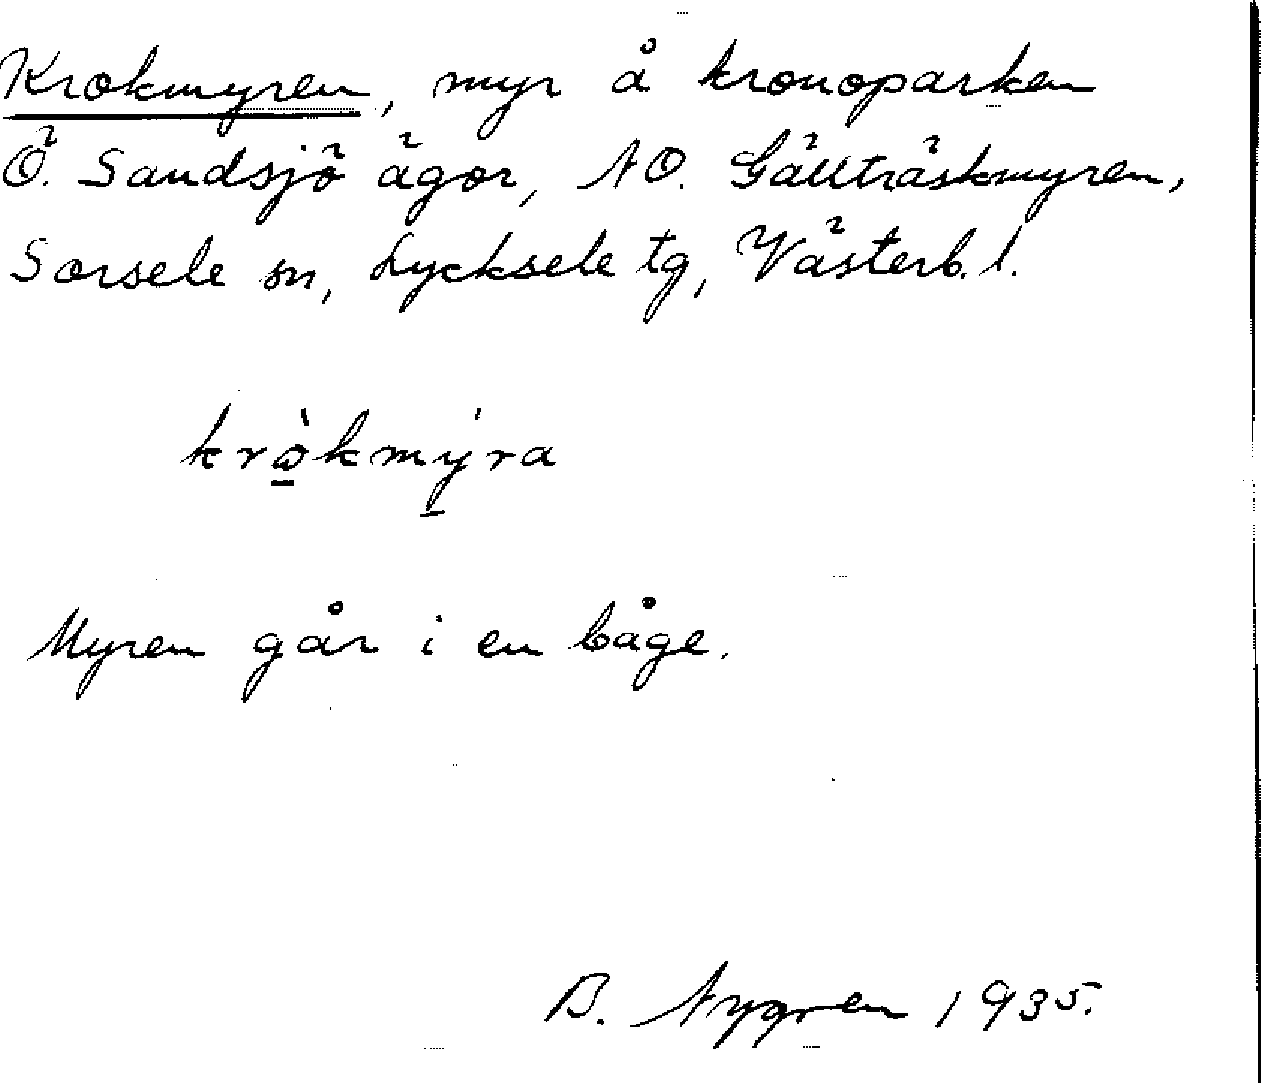 Krokmyren, myr å kronoparken
Ö. Sandsjö ägor, NO. Gällträskmyren,
Sorsele sn, Lycksele tg, Västerb. l.
krò̱kmý̱ra
Myren går i en båge.
B. Nygren 1935.